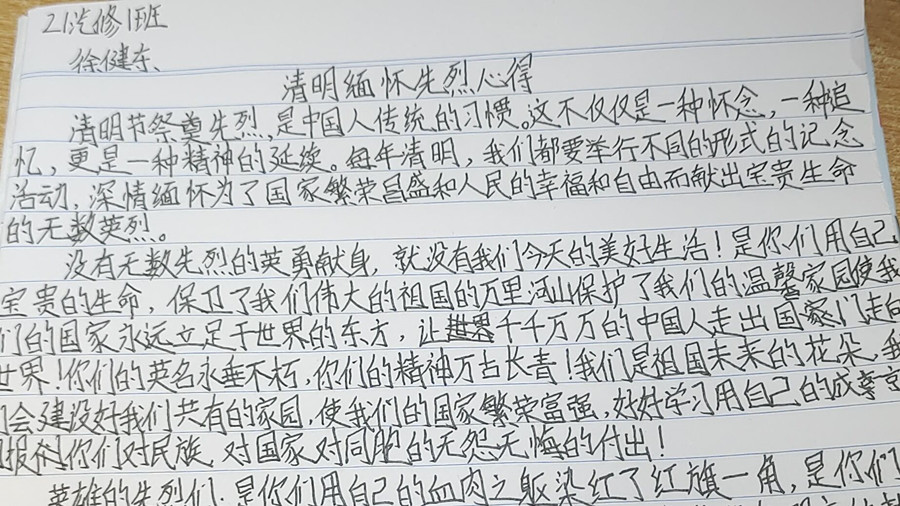 21汽修1班
徐健东、
清明缅怀先烈心得
清明节祭奠先烈,是中国人传统的习惯。这不仅仅是一种怀念,一种追
忆,更是一种精神的延续。每年清明,我们都要举行不同的形式的记念
活动,深情缅怀为了国家繁荣昌盛和人民的幸福和自由而献出宝贵生命
的无数英烈。
没有无数先烈的英勇献身,就没有我们今天的美好生活!是你们用自己
宝贵的生命,保卫了我们伟大的祖国的万里河山保护了我们的温馨家园使我
们的国家永远立足于世界的东方,让千千万万的中国人走出国家门走向
世界!你们的英名永垂不朽,你们的精神万古长青!我们是祖国未来的花朵,我
们会建设好我们共有的家园,使我们的国家繁荣富强,好好学习用自己的成
报你们对民族 对国家对同胞的无怨无悔的付出!
英雄的先烈们,是你们用自己的血肉之躯染红了红旗一角,是你们